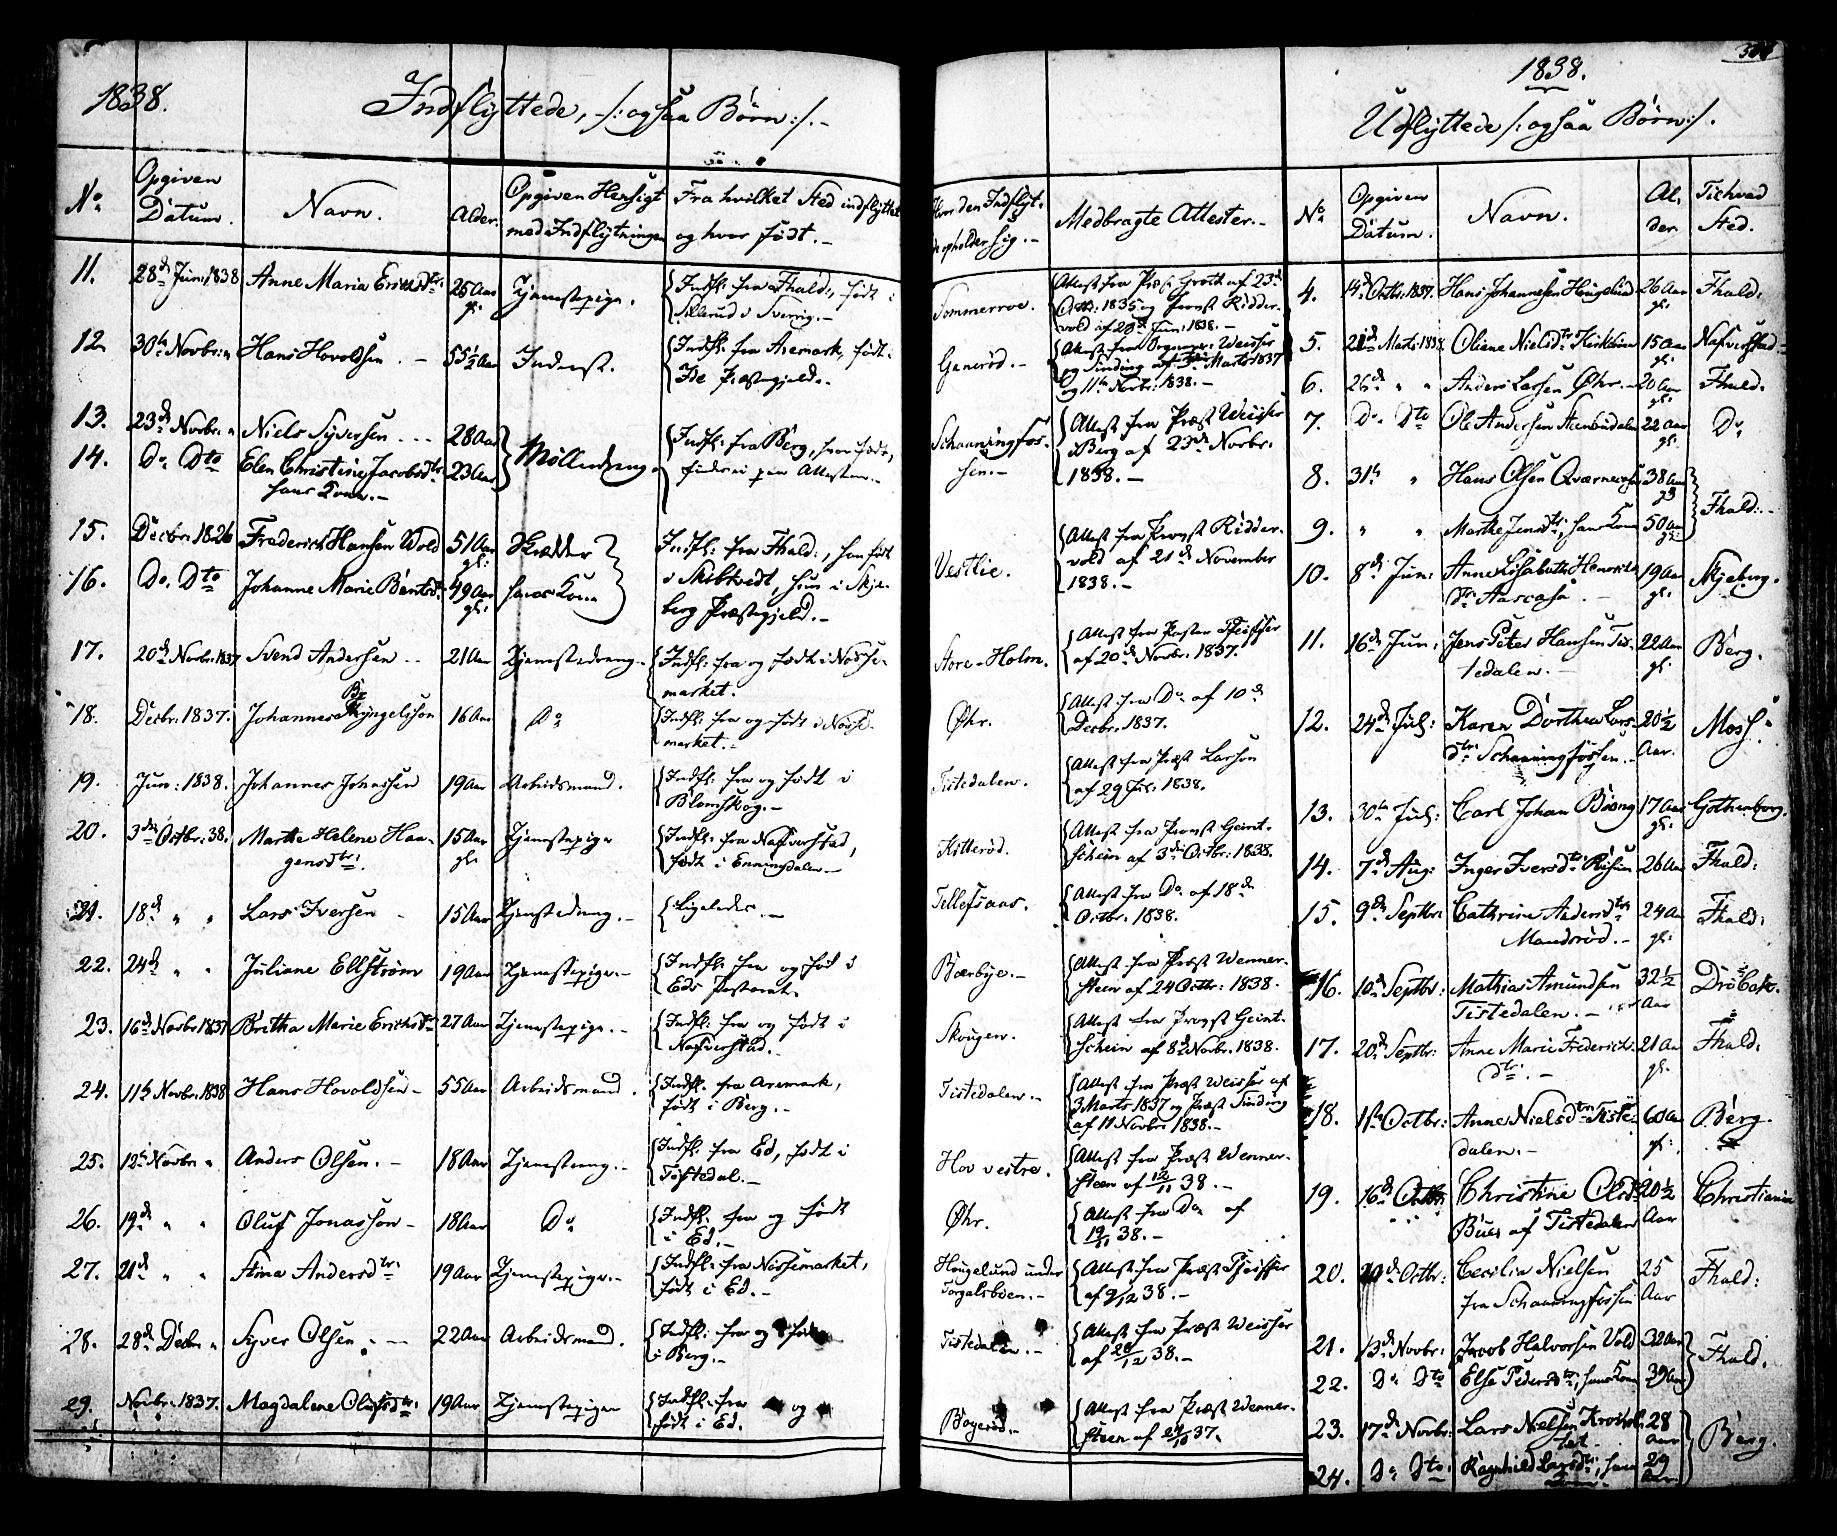 1838.
Indflyttede, /: ogsaa Børn :/. -
No
Opgiven Datum.
Navn.
Alder.
Opgiven Hensigt med Indflytningen
Fra hvilket Sted indflyttet og hvor født. -
Hvor den Indflyt- de opholder sig. -
Medbragte Attester. -
11. 28de Jun: 1838 Anne Maria Ericsdtr: 25 Aar gl: Tjenestepige. Indfl: fra Fhald:, født i Sillerud i Sverrig. - Sommerroe. Attest fra Præst Groth af 23de Octb: 1835 og Provst Ridder- vold af 28de Jun: 1838. -
12 30te Novbr: " Hans Hovoldsen. - 55½ Aar Inderst. Indfl: fra Aremark, født i Ide Præstegjeld. - Ganerød. - Attest fra Weisser og Sinding af 3die Marts 1837 og 11te Novbr: 1838. -
13. 23de Novbr: " Niels Syversen - - - 28 Aar
14. Do Dto Elen Christine Jacobsdtr: hans Kone. - 23 Aar Mølledreng. Indfl: fra Berg, hvor født, findes i paa Attesten. - Schanningfos- sen. - Attest fra Præst Weisser i Berg af 23de Novbr: 1838. -
15. Decbr: 1826 Frederich Hansen Wold 51 Aar gl: Skrædder
16. Do Dto Johanne Marie Bentsdtr: 49 Aar gl: hans Kone Indfl: fra Fhald:, han født i Skibtvedt, hun i Skje- berg Præstegjeld. - Vestlie. Attest fra Provst Ridder- vold af 21de November 1838. -
17. 20de Novbr: 1837 Svend Andersen - - 21 Aar Tjenestedreng. - Indfl: fra og født i Nøsse- market. Store-Holm. Attest fra Pastor Pfeiffer af 20de Novbr: 1837.
18. Decbr: 1837. Johannes Bryngelsson 16 Aar Do Indfl: fra og født i Nøsse- market. - Øhr. Attest fra Do af 10de Decbr. 1837.
19. Jun: 1838. Johannes Johnssen 19 Aar Arbeidsmand. Indfl: fra og født i Blomskog. - Tistedalen. Attest fra Præst Larson af 29 Jun. 1838.
20. 3die Octbr: 38. Marthe Helene Haa- gensdtr: 15 Aar gl. Tjenestepige Indfl: fra Nafverstad, født i Enningdalen. - Kitterød. Attest fra Provst Geint- schein af 3die Octbr: 1838.
21. 18de " " Lars Iversen - 15 Aar Tjenestedreng. - Ligeledes. - Tellefsaas. Attest fra Do af 18de Octbr. 1838.
22. 24de " " Juliane Ellstrøm 19 Aar Tjenestepige. - Indfl: fra og født i Eds Pastorat. Bærbye. - Attest fra Præst Wenner- steen af 24 Octbr: 1838.
23. 16de Novbr: 1837 Britha Marie Erichsdtr 27 Aar Tjenestepige. - Indfl: fra og født i Nafverstad. - Skougen. Attest fra Provst Geint- schein af 8de Novbr. 1838.
24. 11te Novbr: 1838 Hans Hovoldsen - 55 Aar Arbeidsmand. Indfl: fra Aremark, født i Berg. - Tistedalen. - Attest fra Præst Weisser af 3 Marts 1837 og Præst Sinding af 11 Novbr: 1838. -
25. 12te Novbr: " Anders Olsen. - 18 Aar Tjenestdreng. - Indfl: fra Ed, født i Tøftedal. - Hov vestre. Attest fra Præst Wenner- steen af 12/11 38. -
26. 19de " " Oluf Jonasson - 18 Aar Do Indfl: fra og født i Ed. - Øhr. Attest fra Do af 19/11 38. -
27. 21de " " Stina Andersdtr: 19 Aar Tjenestepige. - Indfl: fra Nøssemarket, født i Ed. - Høugelund under Torgalsbøen. - Attest fra Præst Pfeiffer af 9/12 38. -
28. 28de Decbr: " Syver Olsen. - 22 Aar Arbeidsmand. Indfl: fra og født i Berg. - Tistedalen. - Attest fra Præst Weisser af 28/12 38. -
29. Novbr: 1837. Magdalene Olufsdtr: 19 Aar Tjenestepige Indfl: fra og født i Ed. Bøgerød. - Attest fra Præst Wenner- steen af 24/10 37.
1838.
Udflyttede /: ogsaa Børn :/.
No
Opgiven Datum.
Navn.
Al- der.
Til hvad Sted.
4. 14de Octbr: 1837. Hans Johannesen Høugelund 26 Aar gl: Fhald:
5. 21de Marts 1838 Oliane Nielsdtr: 15 Aar gl: Nafverstad -
6. 26de " " Anders Larsen Øhr. - 20 Aar gl: Fhald.
7. Do Dto Ole Andersen 22 Aar gl: Do
8. 31te " Hans Olsen 38 Aar gl
9. " " Marthe Jensdtr:, hans Kone 50 Aar gl: Fhald: -
10. 8de Jun: Anne Lisabeth Henrichs- dtr: Aarcasa. - 19 Aar gl: Skjeberg.
11. 16de Jun: Jens Peter Hansen Tis- tedalen. - 22 Aar gl: Berg.
12. 24de Jul: Karen Dorthea Lars- dtr: Schanningfossen. - 20½ Aar. Moss.
13. 30te Jul: Carl Johan 17 Aar gl: Gothenborg.
14. 7de Aug: Inger Iversdtr: 26 Aar Fhald:
15. 9de Septbr: Cathrine Andersdtr: Mandsrød. - 24 Aar gl: Fhald:
16. 10de Septbr: Mathias Amundsen Tistedalen. - 32½ Aar Drøbak.
17. 20de Septbr: Anne Marie Frederichs- dtr: - 21 Aar gl. Fhald.
18. 1ste Octbr: Anne Nielsdtr: Tiste- dalen. - 60 Aar gl: Berg.
19. 16de Octbr: Christine Olsdtr: Bues af Tistedalen 20½ Aar Christiania
20. Octbr: Cecilia Nielsen fra Schanningfossen 25 Aar Fhald:
21. 13de Novbr: Jacob Halvorsen Vold 32 Aar
22. Do Dto Else Pedersdtr:, hans Kone 39 Aar Fhald.
23. 17de Novbr: Lars Nielsen 28 Aar
24. Do Dto: Ragnhild Larsdtr:, hans Kone. 29 Aar Berg.